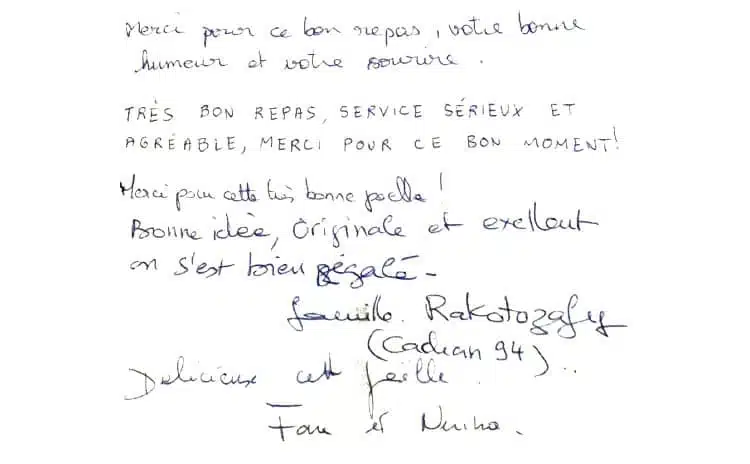 Merci pour ce bon repas, votre bonne
humeur et votre sourire.
TRÈS BON REPAS, SERVICE SÉRIEUX ET
AGRÉABLE, MERCI POUR CE BON MOMENT!
Merci pour cette très bonne paella!
Bonne idée, Originale et exellent
on s'est bien régalé-
famille. Rakotozafy
(Cachan 94)..
Delicieuse cette
et